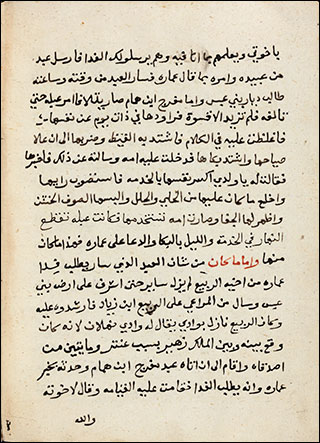 باخوتي ويعلمهم بما انا فيه وهم يرسلو لك الفدا فارسل عبد
من عبيده وامره بما قال عماره فسار العبد من وقته وساعته
طالب ديار بني عبس واما مفرج ابن همام صار يتلافا مر عبله حتي
تالفه فلم تزيد الا قسوة فراودها في ذات يوم عن نفسها
فاغلظت عليه في الكلام فاشتد به الغيظ وضربها الي ان علا
صياحها واشتد بكاها فدخلت عليه امه وسالته عن ذلك فاخبرها
فقالت له يا ولدي اكسر نفسها بالخدمه فاستصوب رايها
واخلع ما كان عليها من الحلي والحلل والبسها الصوف الخشن
واظهر لها الجفا وصارت امه تستخدمها فكانت عبله تقطع
النهار في الخدمه والليل بالبكا والدعا علي عماره فهذا ما كان
منها واما ما كان من شان العبد الذي سار يطلب فدا
عماره من اخيه الربيع لم يزل ساير حتي اشرف علي ارض بني
عبس وسال من المراعي علي الربيع ابن زياد فارشدوه عليه
وكان الربيع نازل بوادي يقال له وادي لانه كان
وقع بينه وبين الملك زهير بسبب عنتر ومايتين من
اصدقاه واقام الي ان اتاه عبد مفرج ابن همام وحدثه بخبر
عماره وانه يطلب الفدا فقامت عليه القيامه وقال لاخوته
والله